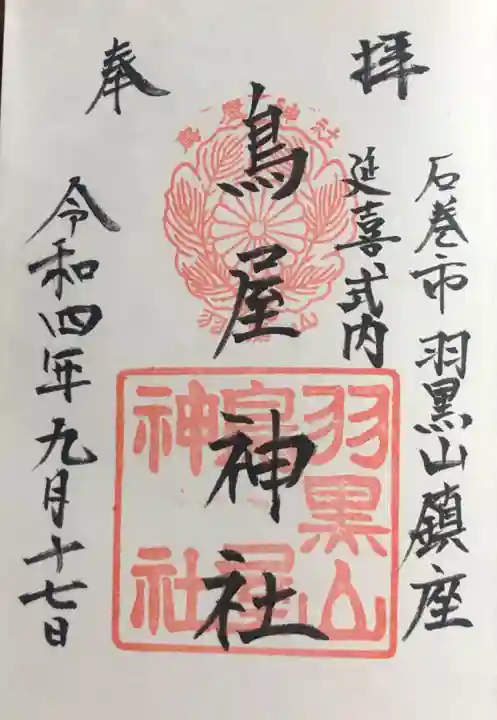 奉
拝
石巻市羽黒山鎮座
延喜式内
鳥屋神社
令和四年九月十七日
鳥屋神社
羽黒山
羽黒山
鳥屋
神社